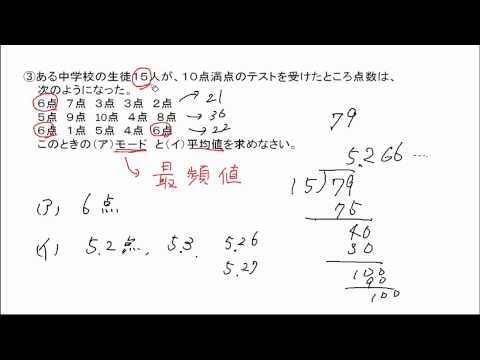 ③ある中学校の生徒15人が、10点満点のテストを受けたところ点数は、
次のようになった。
6点 7点 3点 3点 2点 → 21
5点 9点 10点 4点 8点 → 36
6点 1点 5点 4点 6点 → 22
このときの(ア)モード と(イ)平均値を求めなさい。
最頻値
(ア) 6点
(イ) 5.2点、 5.3
5.26
5.27
79
5.266…
15)79
75
40
30
100
90
100